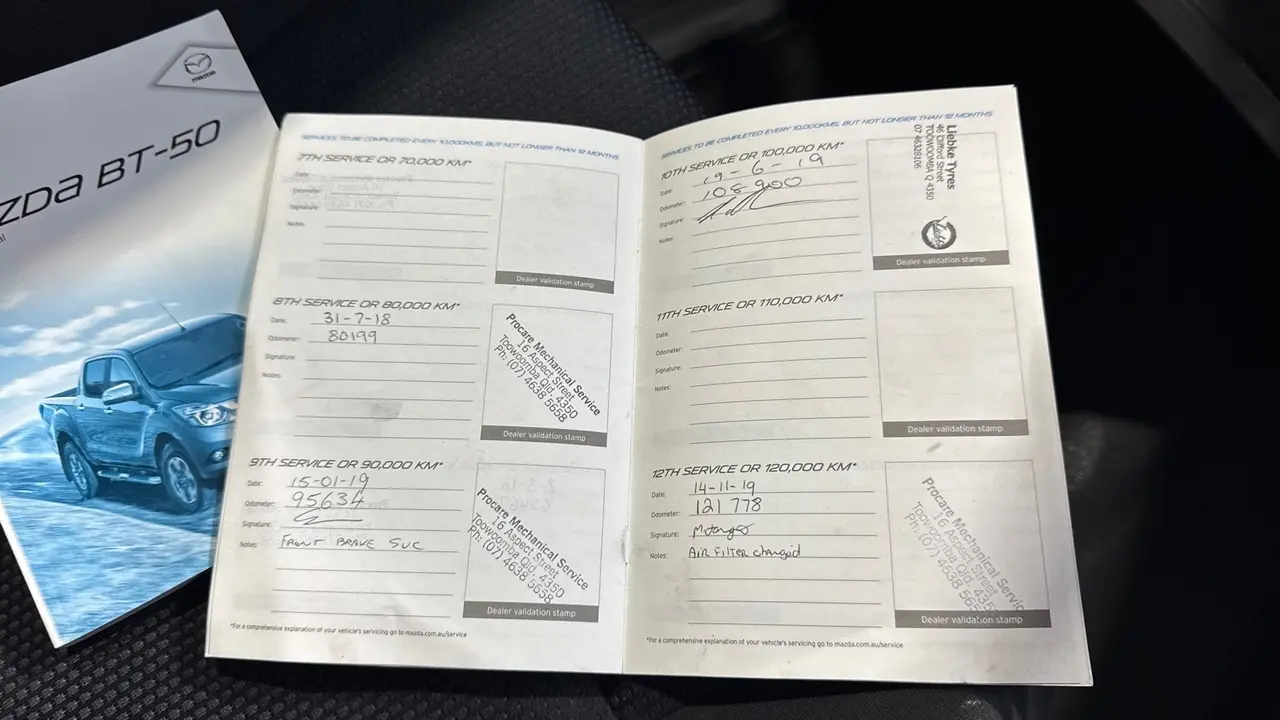 mazda
ZDa BT-50
al
SERVICES TO BE COMPLETED EVERY 10,000KMS, BUT NOT LONGER THAN 12 MONTHS
7TH SERVICE OR 70,000 KM*
Date:
Odometer:
Signature:
Notes:
Dealer validation stamp
8TH SERVICE OR 80,000 KM*
Date: 31-7-18
Odometer: 80199
Signature:
Notes:
Procare Mechanical Service
16 Aspect Street
Toowoomba Qld. 4350
Ph: (07) 4638 5658
Dealer validation stamp
9TH SERVICE OR 90,000 KM*
Date: 15-01-19
Odometer: 95634
Signature:
Notes: FRONT BRAKE SVC
Procare Mechanical Service
16 Aspect Street
Toowoomba Qld. 4350
Ph: (07) 4638 5658
Dealer validation stamp
*For a comprehensive explanation of your vehicle's servicing go to mazda.com.au/service
SERVICES TO BE COMPLETED EVERY 10,000KMS, BUT NOT LONGER THAN 12 MONTHS
10TH SERVICE OR 100,000 KM*
Date: 19-6-19
Odometer: 108900
Signature:
Notes:
Liebke Tyres
46 Street
TOOWOOMBA Q 4350
07 46328106
Dealer validation stamp
11TH SERVICE OR 110,000 KM*
Date:
Odometer:
Signature:
Notes:
Dealer validation stamp
12TH SERVICE OR 120,000 KM*
Date: 14-11-19
Odometer: 121 778
Signature:
Notes: AIR FILTER changed
Procare Mechanical Servic
16 Aspect Street
Toowoomba Qld. 435
Ph: (07) 4638 565
Dealer validation stamp
*For a comprehensive explanation of your vehicle's servicing go to mazda.com.au/service